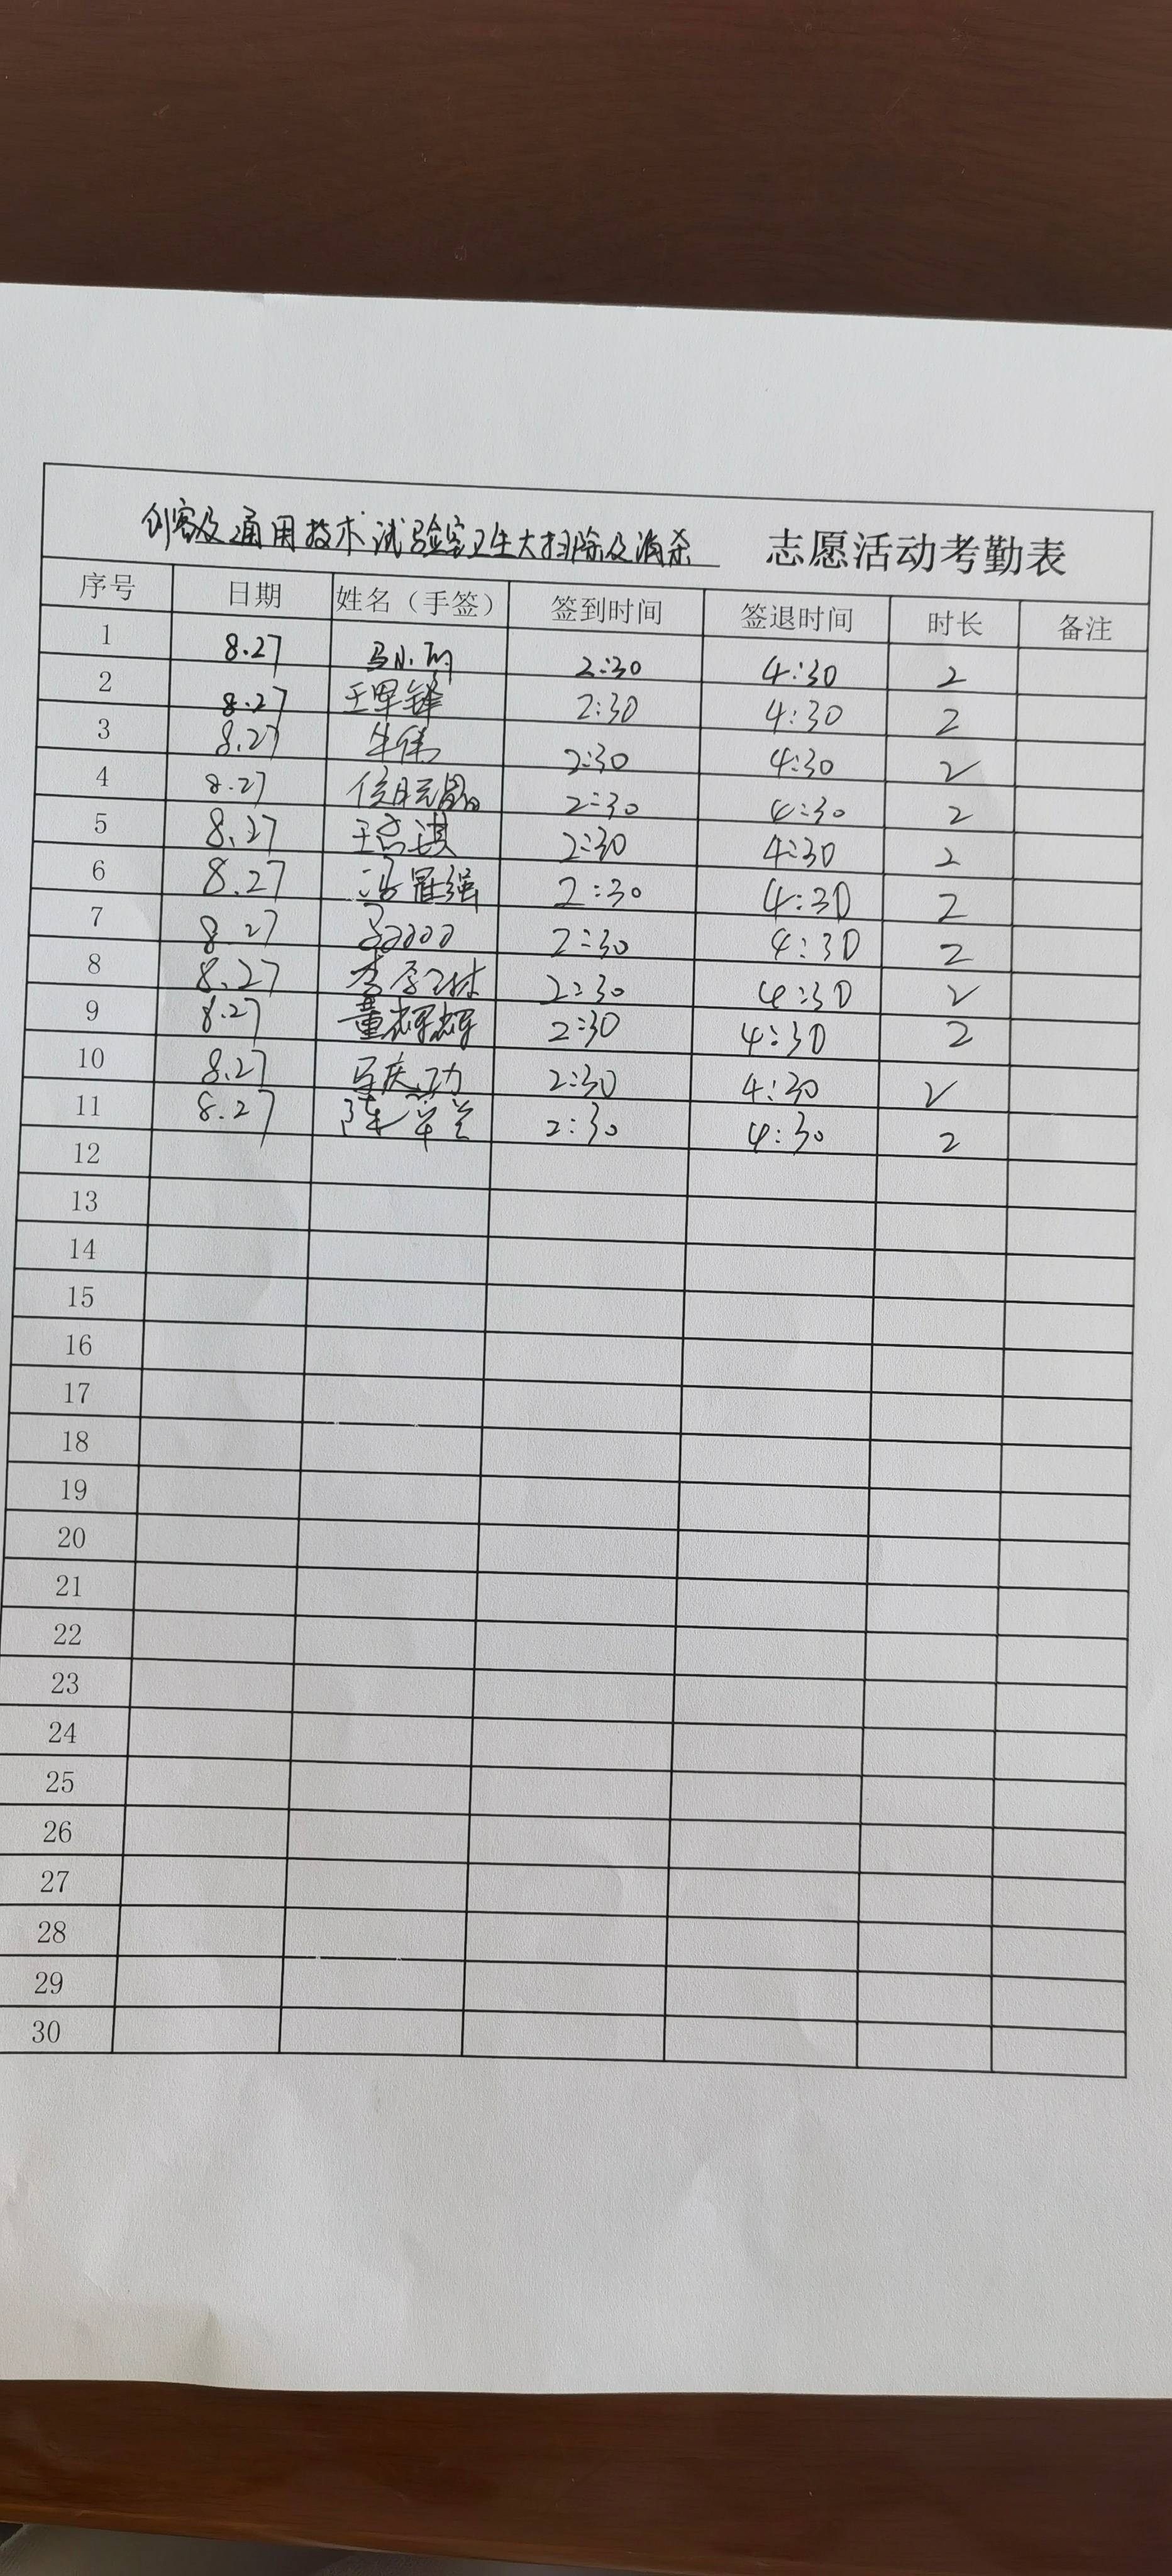 创客及通用技术试验室卫生大扫除及消杀 志愿活动考勤表
序号 日期 姓名（手签） 签到时间 签退时间 时长 备注
1 8.27 2:30 4:30 2
2 8.27 王军锋 2:30 4:30 2
3 8.27 牛伟 2:30 4:30 2
4 8.27 2:30 4:30 2
5 8.27 2:30 4:30 2
6 8.27 2:30 4:30 2
7 8.27 2:30 4:30 2
8 8.27 2:30 4:30 2
9 8.27 董辉辉 2:30 4:30 2
10 8.27 马庆功 2:30 4:30 2
11 8.27 2:30 4:30 2
12
13
14
15
16
17
18
19
20
21
22
23
24
25
26
27
28
29
30